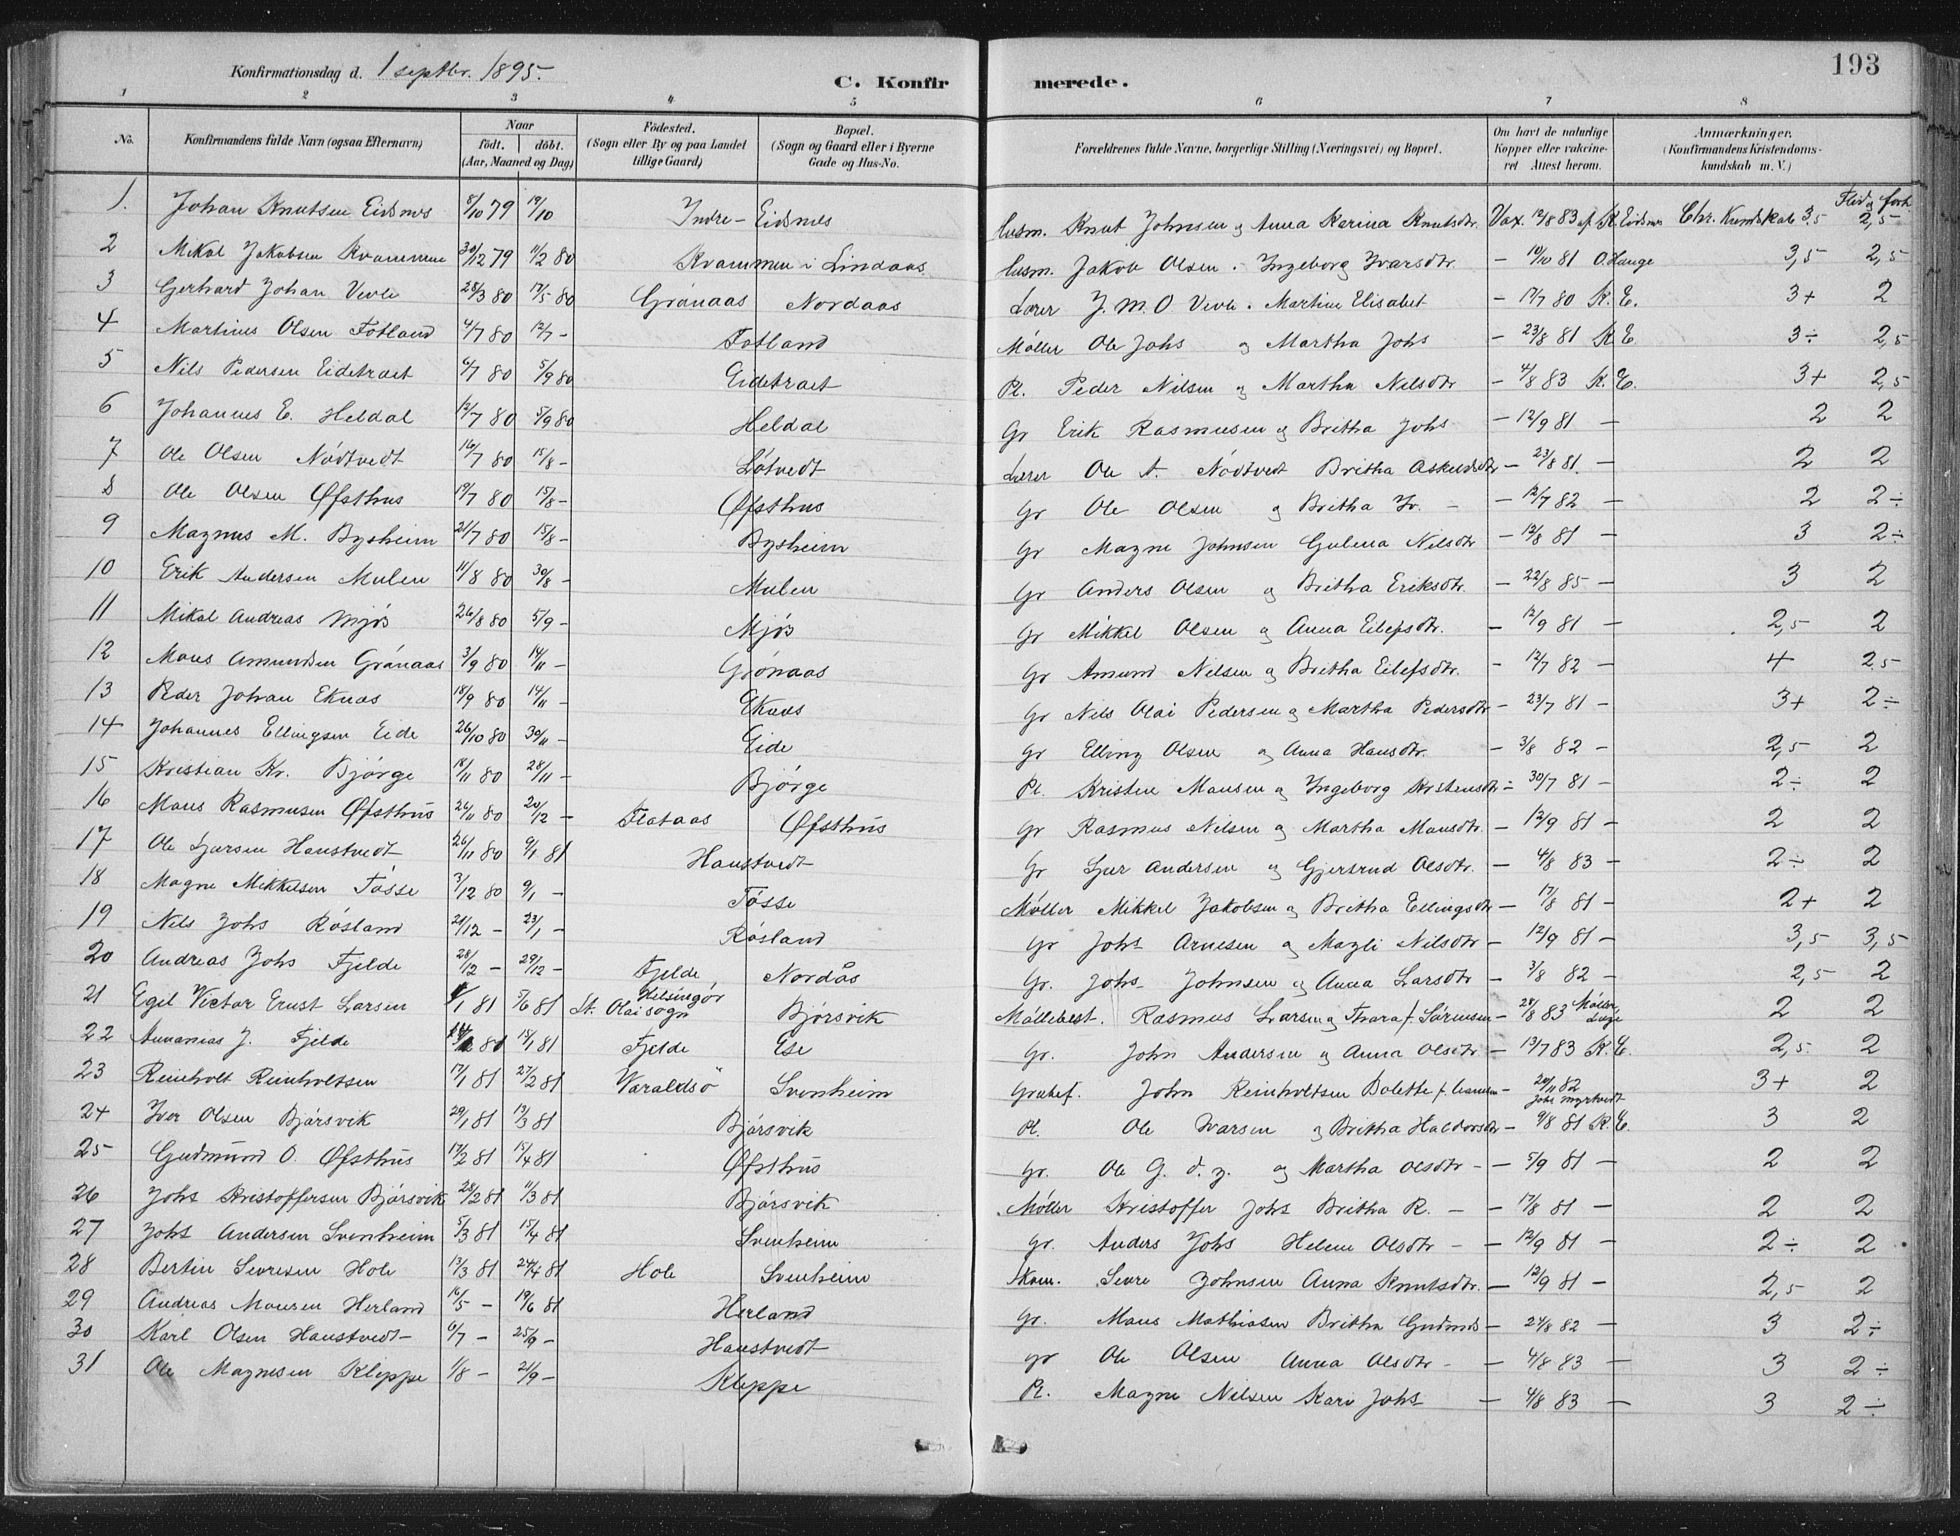 193
Konfirmationsdag d. 1 septbr. 1895. C. Konfirmerede.
1 2 3 4 5 6 7 8
No. Konfirmandens fulde Navn (ogsaa Efternavn) Naar födt. döbt. (Aar, Maaned og Dag) Födested. (Sogn eller By og paa Landet tillige Gaard) Bopæl. (Sogn og Gaard eller i Byerne Gade og Hus-No. Forældrenes fulde Navne, borgerlige Stilling (Næringsvei) og Bopæl. Om havt de naturlige Kopper eller vakcineret Attest herom. Anmærkninger. (Konfirmandens Kristendomskundskab m. V.)
Flid og forh.
1. Johan Knutsen Eidsnes 8/10 79 19/10 Indre-Eidsnes Husm. Knut Johnsen og Anna Karina Knutsdtr. Vax. 12/8 83 af K. Eidsnes Chr. Kundskab 3,5 2,5
2 Mikal Jakobsen Kvammen 30/12 79 11/2 80 Kvammen i Lindaas Husm. Jakob Olsen . Ingeborg Ivarsdtr - 10/10 81 O Hauge 3,5 2,5
3 Gerhard Johan Vevle 28/3 80 17/5 80 Grönaas Nordaas Lærer J. M. O Vevle . Martine Elisabet - 17/7 80 K. E. 3+ 2
4 Martinus Olsen Fotland 4/7 80 12/7 - Fotland Møller Ole Johs og Martha Johs - 23/8 81 K E 3÷ 2,5
5 Nils Pedersen Eidetræet 6/7 80 5/9 80 Eidetræet Pl. Peder Nilsen og Martha Nilsdtr - 4/8 83 K. E. 3+ 2,5
6 Johannes E. Heldal 12/7 80 5/9 80 Heldal Gr Erik Rasmusen og Britha Johs - 12/9 81 - 2 2
7 Ole Olsen Nödtvedt 16/7 80 15/8 - Lötvedt Lærer Ole A. Nödtvedt Britha Askeldsdtr - 23/8 81. - 2 2
8 Ole Olsen Øfsthus 19/7 80 15/8 - Øfsthus Gr Ole Olsen og Britha Iv. - - 12/7 82 - 2 2÷
9 Magnus M. Bysheim 21/7 80 15/8 - Bysheim Gr Magne Johnsen Gulena Nilsdtr - 12/8 81 - 3 2÷
10 Erik Andersen Mulen 11/8 80 30/8 - Mulen Gr Anders Olsen og Britha Eriksdtr. - 22/8 85 - 3 2
11 Mikal Andreas Mjös 26/8 80 5/9 - Mjös Gr Mikkel Olsen og Anna Eilefsdtr. - 12/9 81 - 2,5 2
12 Mons Amundsen Grönaas 3/9 80 14/11 - Grönaas Gr Amund Nilsen og Britha Eilefsdtr. - 12/7 82 - 4 2,5
13 Peder Johan Eknes 18/9 80 14/11 - Eknes Gr Nils Olai Pedersen og Martha Pedersdtr - 23/7 81 - 3+ 2÷
14 Johannes Ellingsen Eide 26/10 80 30/11 - Eide Gr Elling Olsen og Anna Hansdtr. - 3/8 82 - 2,5 2
15 Kristian Kr. Bjørge 18/11 80 28/11 - Bjørge Pl. Kristen Monsen og Ingeborg Kristensdtr - 30/7 81 - 2÷ 2
16 Mons Rasmusen Øfsthus 26/11 80 20/12 - Flataas Øfsthus Gr Rasmus Nilsen og Martha Monsdtr - 12/9 81 - 2 2
17 Ole Sjursen Haustvedt 26/11 80 9/1 81 Haustvedt Gr Sjur Andersen og Gjertrud Olsdtr. - 4/8 83 - 2÷ 2
18 Magne Mikkelsen Tösse 3/12 80 9/1 - Tösse Møller Mikkel Jakobsen og Britha Ellingsdtr - 17/8 81 - 2+ 2
19 Nils Johs Rösland 21/12 - 23/1 - Rösland Gr Johs Arnesen og Magli Nilsdtr - 12/9 81 - 3,5 3,5
20 Andreas Johs Fjelde 28/12 - 29/12 - Fjelde Nordås Gr. Johs Johnsen og Anna Larsdtr - 3/8 82 - 2,5 2
21 Egil Victor Ernst Larsen 1/1 81 5/6 81 St. Olai sogn Helsingør Bjørsvik Møllebest. Rasmus Larsen og Thora f. Sörensen - 28/8 83 Møller Læge 2 2
22 Annanias J. Fjelde 80 15/1 81 Fjelde Ese Gr. John Andersen og Anna Olsdtr - 13/7 83 K. E. 2,5 2
23 Reinholt Reinholtsen 17/1 81 27/2 81 Varaldsö Svenheim Grubef. John Reinholtsen Bolette f. - 20/11 82 Johs Myrtvedt 3+ 2
24 Ivar Olsen Bjørsvik 29/1 81 13/3 81 Bjørsvik Pl. Ole Ivarsen og Britha Haldorsdtr - 9/8 81 K. E. 3 2
25 Gudmund O. Øfsthus 17/2 81 15/4 81 Øfsthus Gr. Ole G. d. y. og Martha Olsdtr - - 5/9 81 - 2 2
26 Johs Kristoffersen Bjørsvik 28/2 81 11/3 81 Bjørsvik Møller Kristoffer Johs Britha R. - - 17/8 81 - 2 2
27 Johs Andersen Svenheim 5/3 81 15/4 81 Svenheim Gr. Anders Johs Helene Olsdtr - - 12/9 81 - 2÷ 2
28 Bertin Sevresen Hole 13/3 81 24/4 81 Hole Svenheim Skom. Sevre Johnsen Anna Knutsdtr. - 12/9 81 - 2,5 2
29 Andreas Monsen Herland 16/5 - 19/6 81 Herland Gr. Mons Mathiasen Britha Gudmds - 24/8 82 - 3 2÷
30 Karl Olsen Haustvedt 6/7 - 25/9 - Haustvedt Gr Ole Olsen Anna Olsdtr - - 4/8 83 - 3 2÷
31 Ole Magnesen Kleppe 1/8 - 21/9 - Kleppe Pl. Magne Nilsen Kari Johs - 4/8 83 - 3 2÷